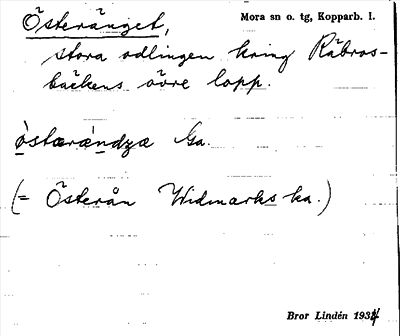 Österänget, Mora sn o. tg, Kopparb. l.
stora odlingen kring Råbros-
bäckens övre lopp.
ò̱stærǽndzæ Ga.
(= Österån Widmarks ka.)
Bror Lindén 1934